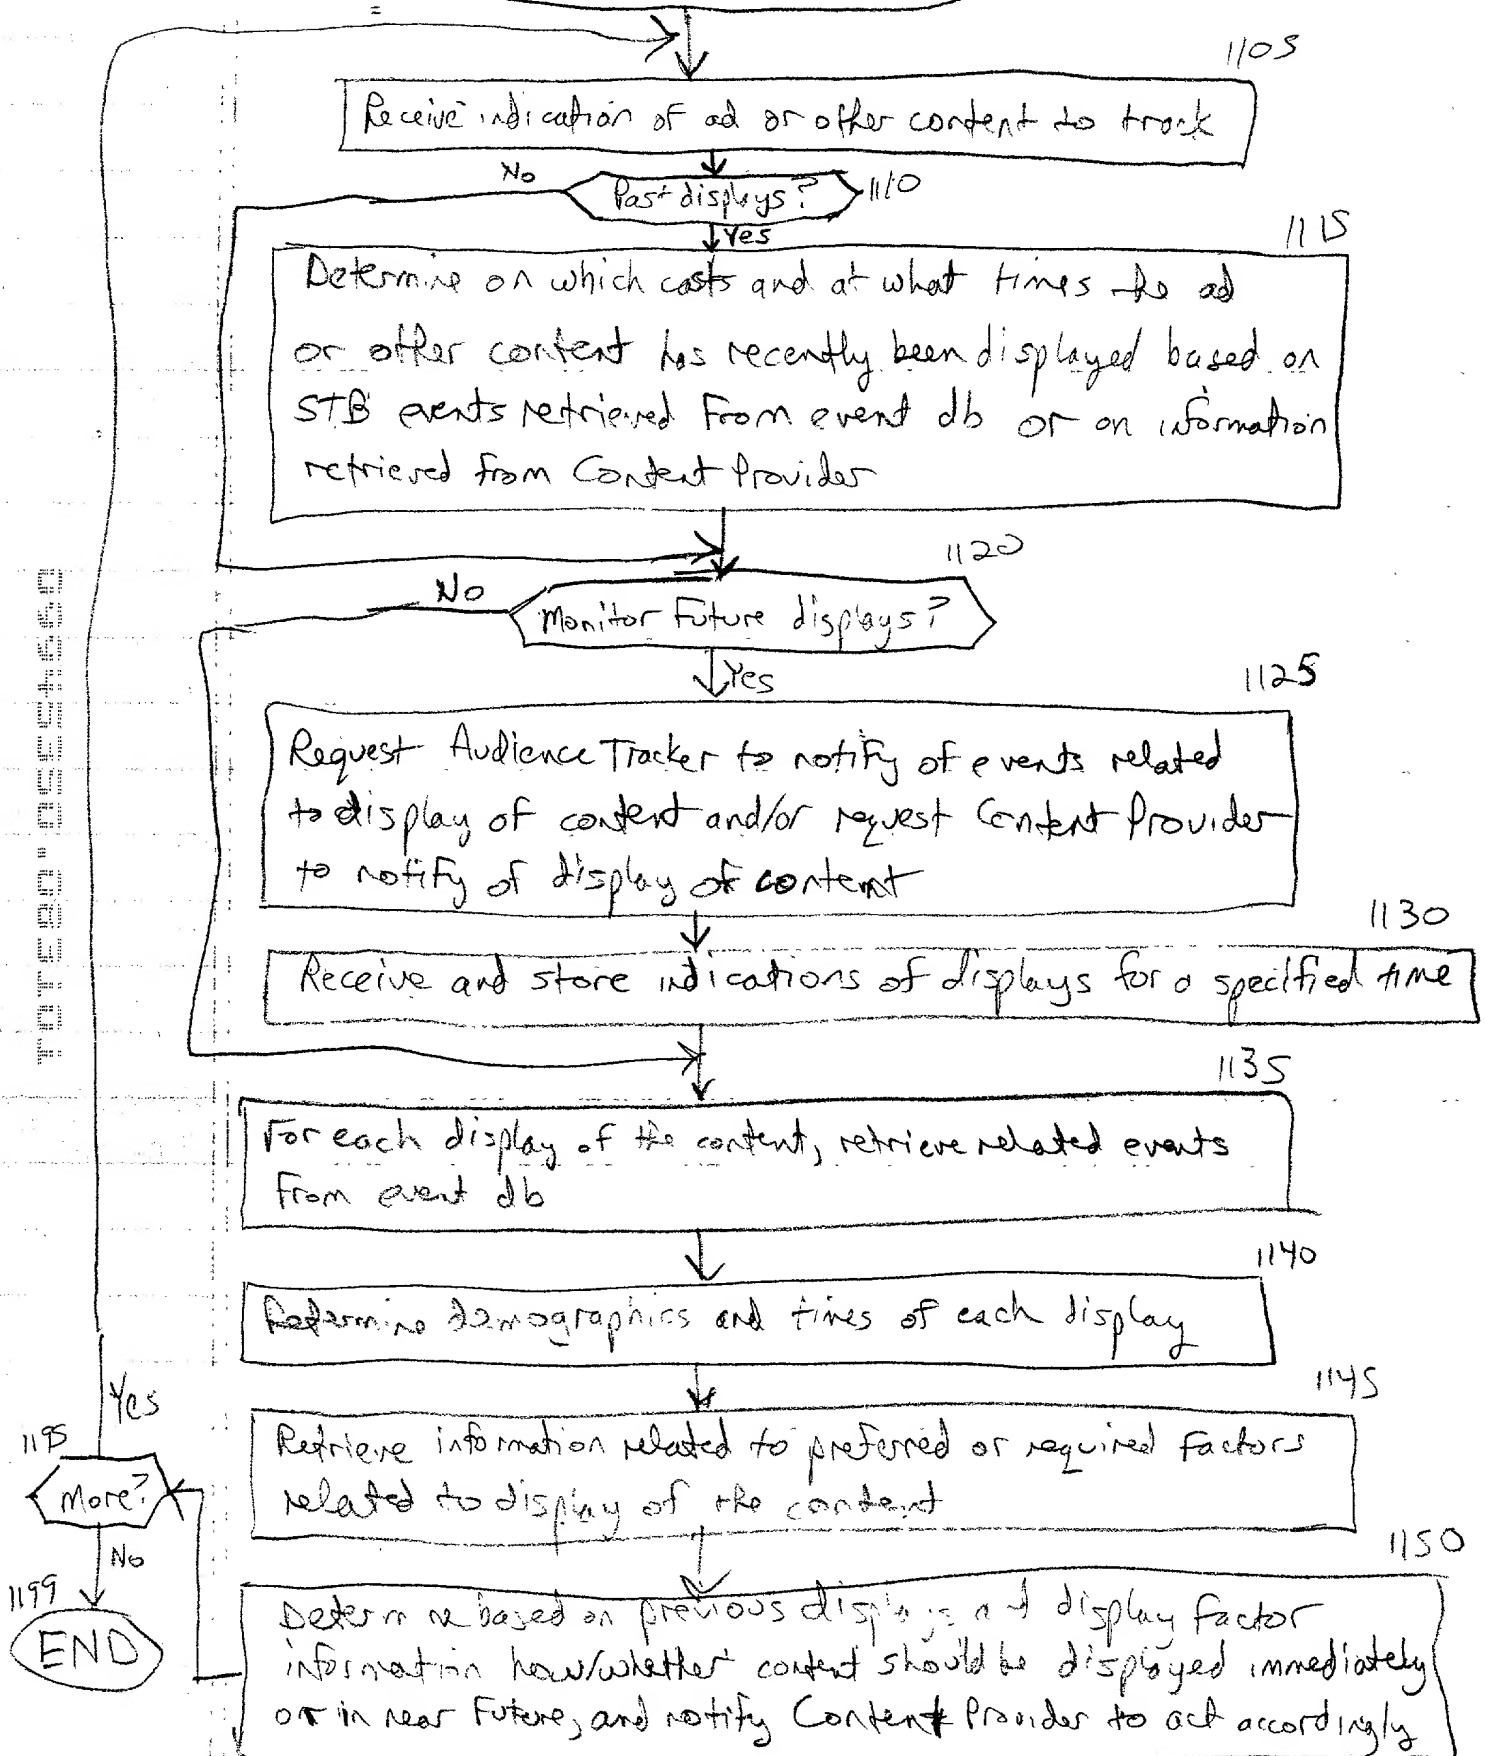 1105
Receive indication of ad or other content to track
No
Past displays?
1110
Yes
1115
Determine on which casts and at what times the ad
or other content has recently been displayed based on
STB events retrieved from event db or on information
retrieved from Content Provider
1120
No
Monitor Future displays?
Yes
1125
Request Audience Tracker to notify of events related
to display of content and/or request Content Provider
to notify of display of content
1130
Receive and store indications of displays for a specified time
1135
For each display of the content, retrieve related events
from event db
1140
Determine demographics and times of each display
1145
Retrieve information related to preferred or required factors
related to display of the content
Yes
1195
More?
No
1199
END
1150
Determine based on previous displays and display factor
information how/whether content should be displayed immediately
or in near future, and notify Content Provider to act accordingly